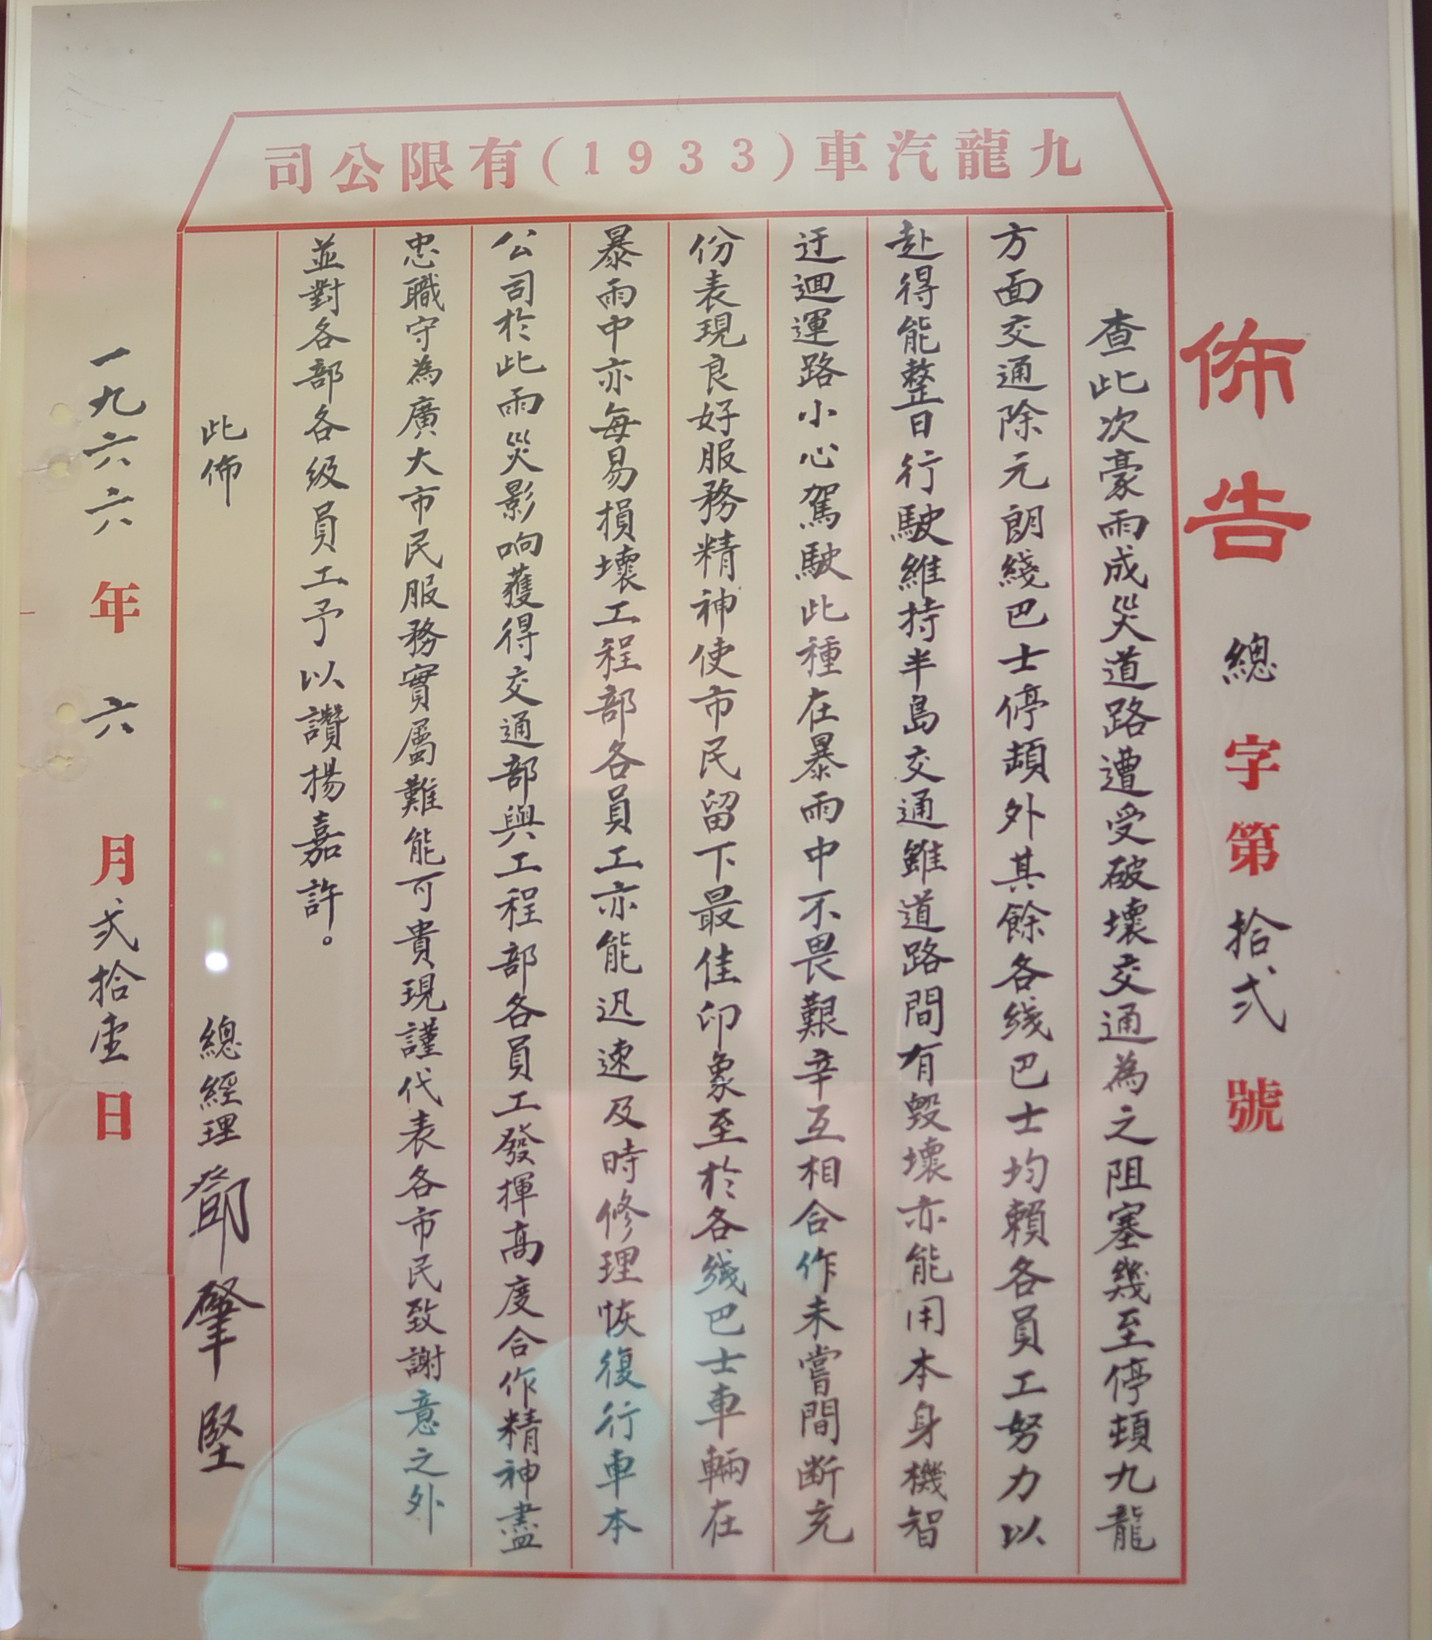 九龍汽車(1933)有限公司
佈告 總字第拾弍號
查此次豪雨成災道路遭受破壞交通為之阻塞幾至停頓九龍
方面交通除元朗綫巴士停頓外其餘各綫巴士均賴各員工努力以
赴得能整日行駛維持半島交通雖道路間有毀壞亦能用本身機智
迂迴運路小心駕駛此種在暴雨中不畏艱辛互相合作未嘗間断充
份表現良好服務精神使市民留下最佳印象至於各綫巴士車輛在
暴雨中亦每易損壞工程部各員工亦能迅速及時修理恢復行車本
公司於此雨災影响獲得交通部與工程部各員工發揮高度合作精神盡
忠職守為廣大市民服務實屬難能可貴現謹代表各市民致謝意之外
並對各部各級員工予以讚揚嘉許。
此佈
總經理鄧肇堅
一九六六年六月弍拾壹日